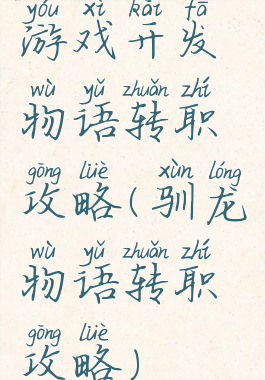 yóu xì kāi fā
游戏开发
wù yǔ zhuǎn zhí
物语转职
gōng lüè xùn lóng
攻略(驯龙
wù yǔ zhuǎn zhí
物语转职
gōng lüè
攻略)